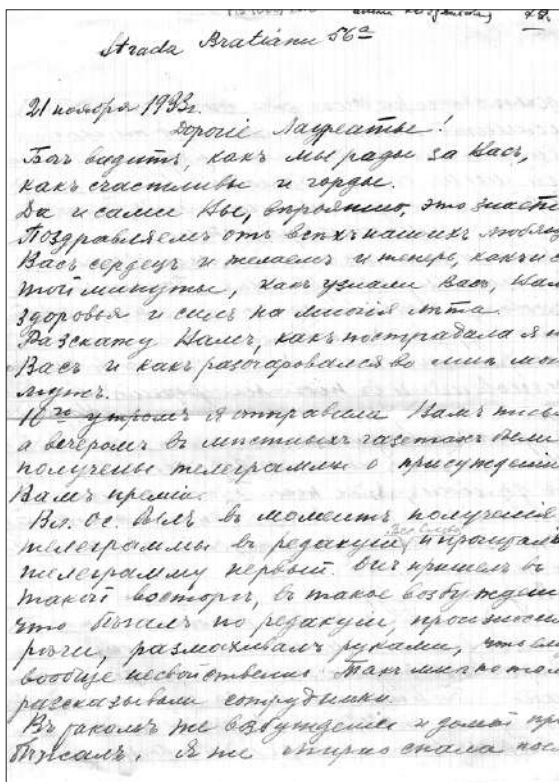 Strada Bratianu 56ª
21 ноября 1933г.
Дорогіе Лауреаты!
Богъ видитъ, какъ мы рады за Васъ,
какъ счастливы и горды.
Да и сами Вы, вѣроятно, это знаете
Поздравляемъ отъ всѣхъ нашихъ любящ
Васъ сердецъ и желаемъ и теперь, какъ и с
той минуты, какъ узнали Васъ, Вам
здоровья и силъ на многія лѣта.
Разскажу Вамъ, какъ пострадала я
Васъ и какъ разочаровался во мнѣ мой
мужъ.
10го утромъ я отправила Вамъ
а вечеромъ въ мѣстныхъ газетахъ были
получены телеграммы о присужденіи
Вамъ преміи.
Вл. Ос. былъ въ моментъ полученія
телеграммы въ редакціи и прочиталъ
телеграмму первый. Онъ пришелъ въ
такой восторгъ, въ такое возбужден
что бѣгалъ по редакціи, произноси
рѣчи, размахивалъ руками, что ем
вообще несвойственно. Такъ мнѣ потом
разсказывали сотрудники.
Въ такомъ же возбужденіи и домой при
бѣжалъ. Я же мирно спала